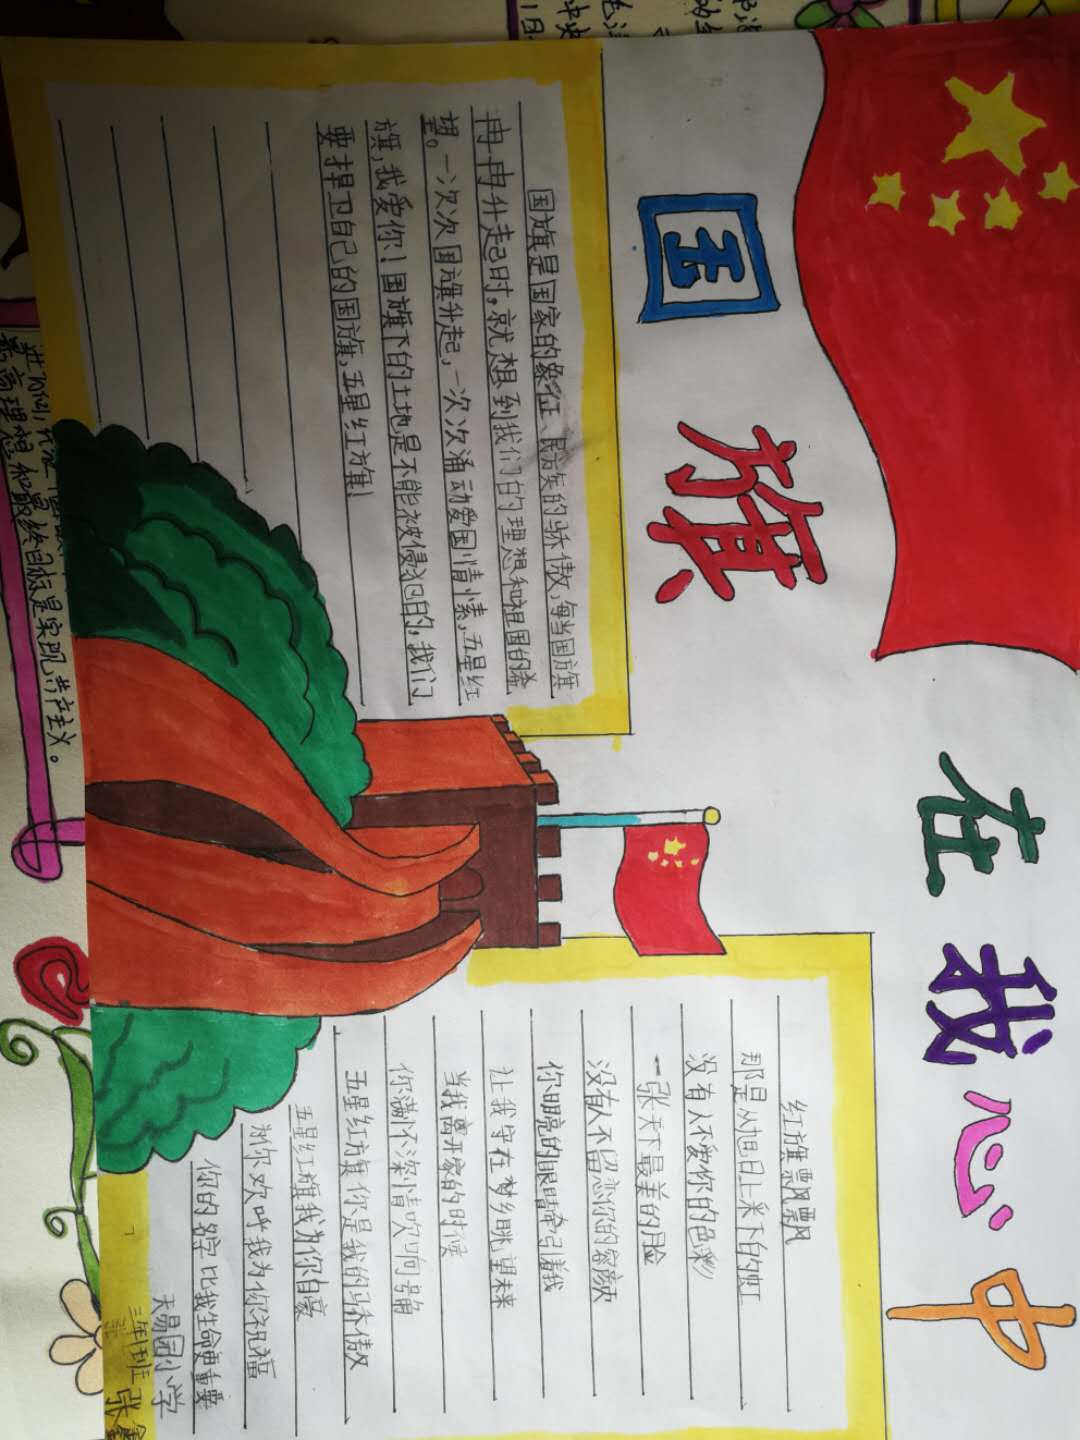 国旗在我心中
国旗是国家的象征、民族的骄傲,每当国旗
冉冉升起时,就想到我们的理想和祖国的希
望。一次次国旗升起,一次次涌动爱国情愫,五星红
旗,我爱你!国旗下的土地是不能被侵犯的,我们
要捍卫自己的国旗,五星红旗!
红旗飘飘
那是从旭日上采下的虹
没有人不爱你的色彩
一张天下最美的脸
没有人不留恋你的容颜
你明亮的眼睛牵引着我
让我守在梦乡眺望未来
当我离开家的时候
你满怀深情吹响号角
五星红旗你是我的骄傲
五星红旗我为你自豪
为你欢呼我为你祝福
你的名字比我生命更重要
天易园小学
张
最高理想和最终目标是实现共产主义。